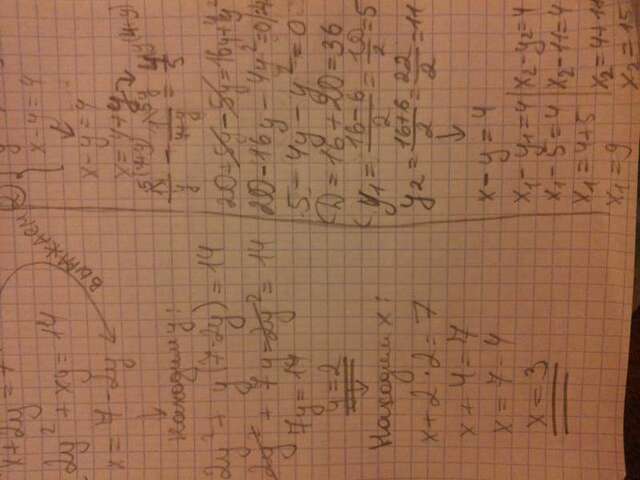 x+2y=7
2y²+xy=14
x=7-2y
выражаем
Находим y:
2y²+y(7-2y)=14
2y²+7y-2y²=14
7y=14
y=2
Находим x:
x+2·2=7
x+4=7
x=7-4
x=3
2)
x-y=4
x-y=4
x=4+y
20=5y-5y=16y+4y²
20-16y-4y²=0/:4
5-4y-y²=0
D=16+20=36
y₁=16-6/2=10/2=5
y₂=16+6/2=22/2=11
x-y=4
x₁-y₁=4
x₁-5=4
x₁=4+5
x₁=9
x₂-y₂=4
x₂-11=4
x₂=4+11
x₂=15